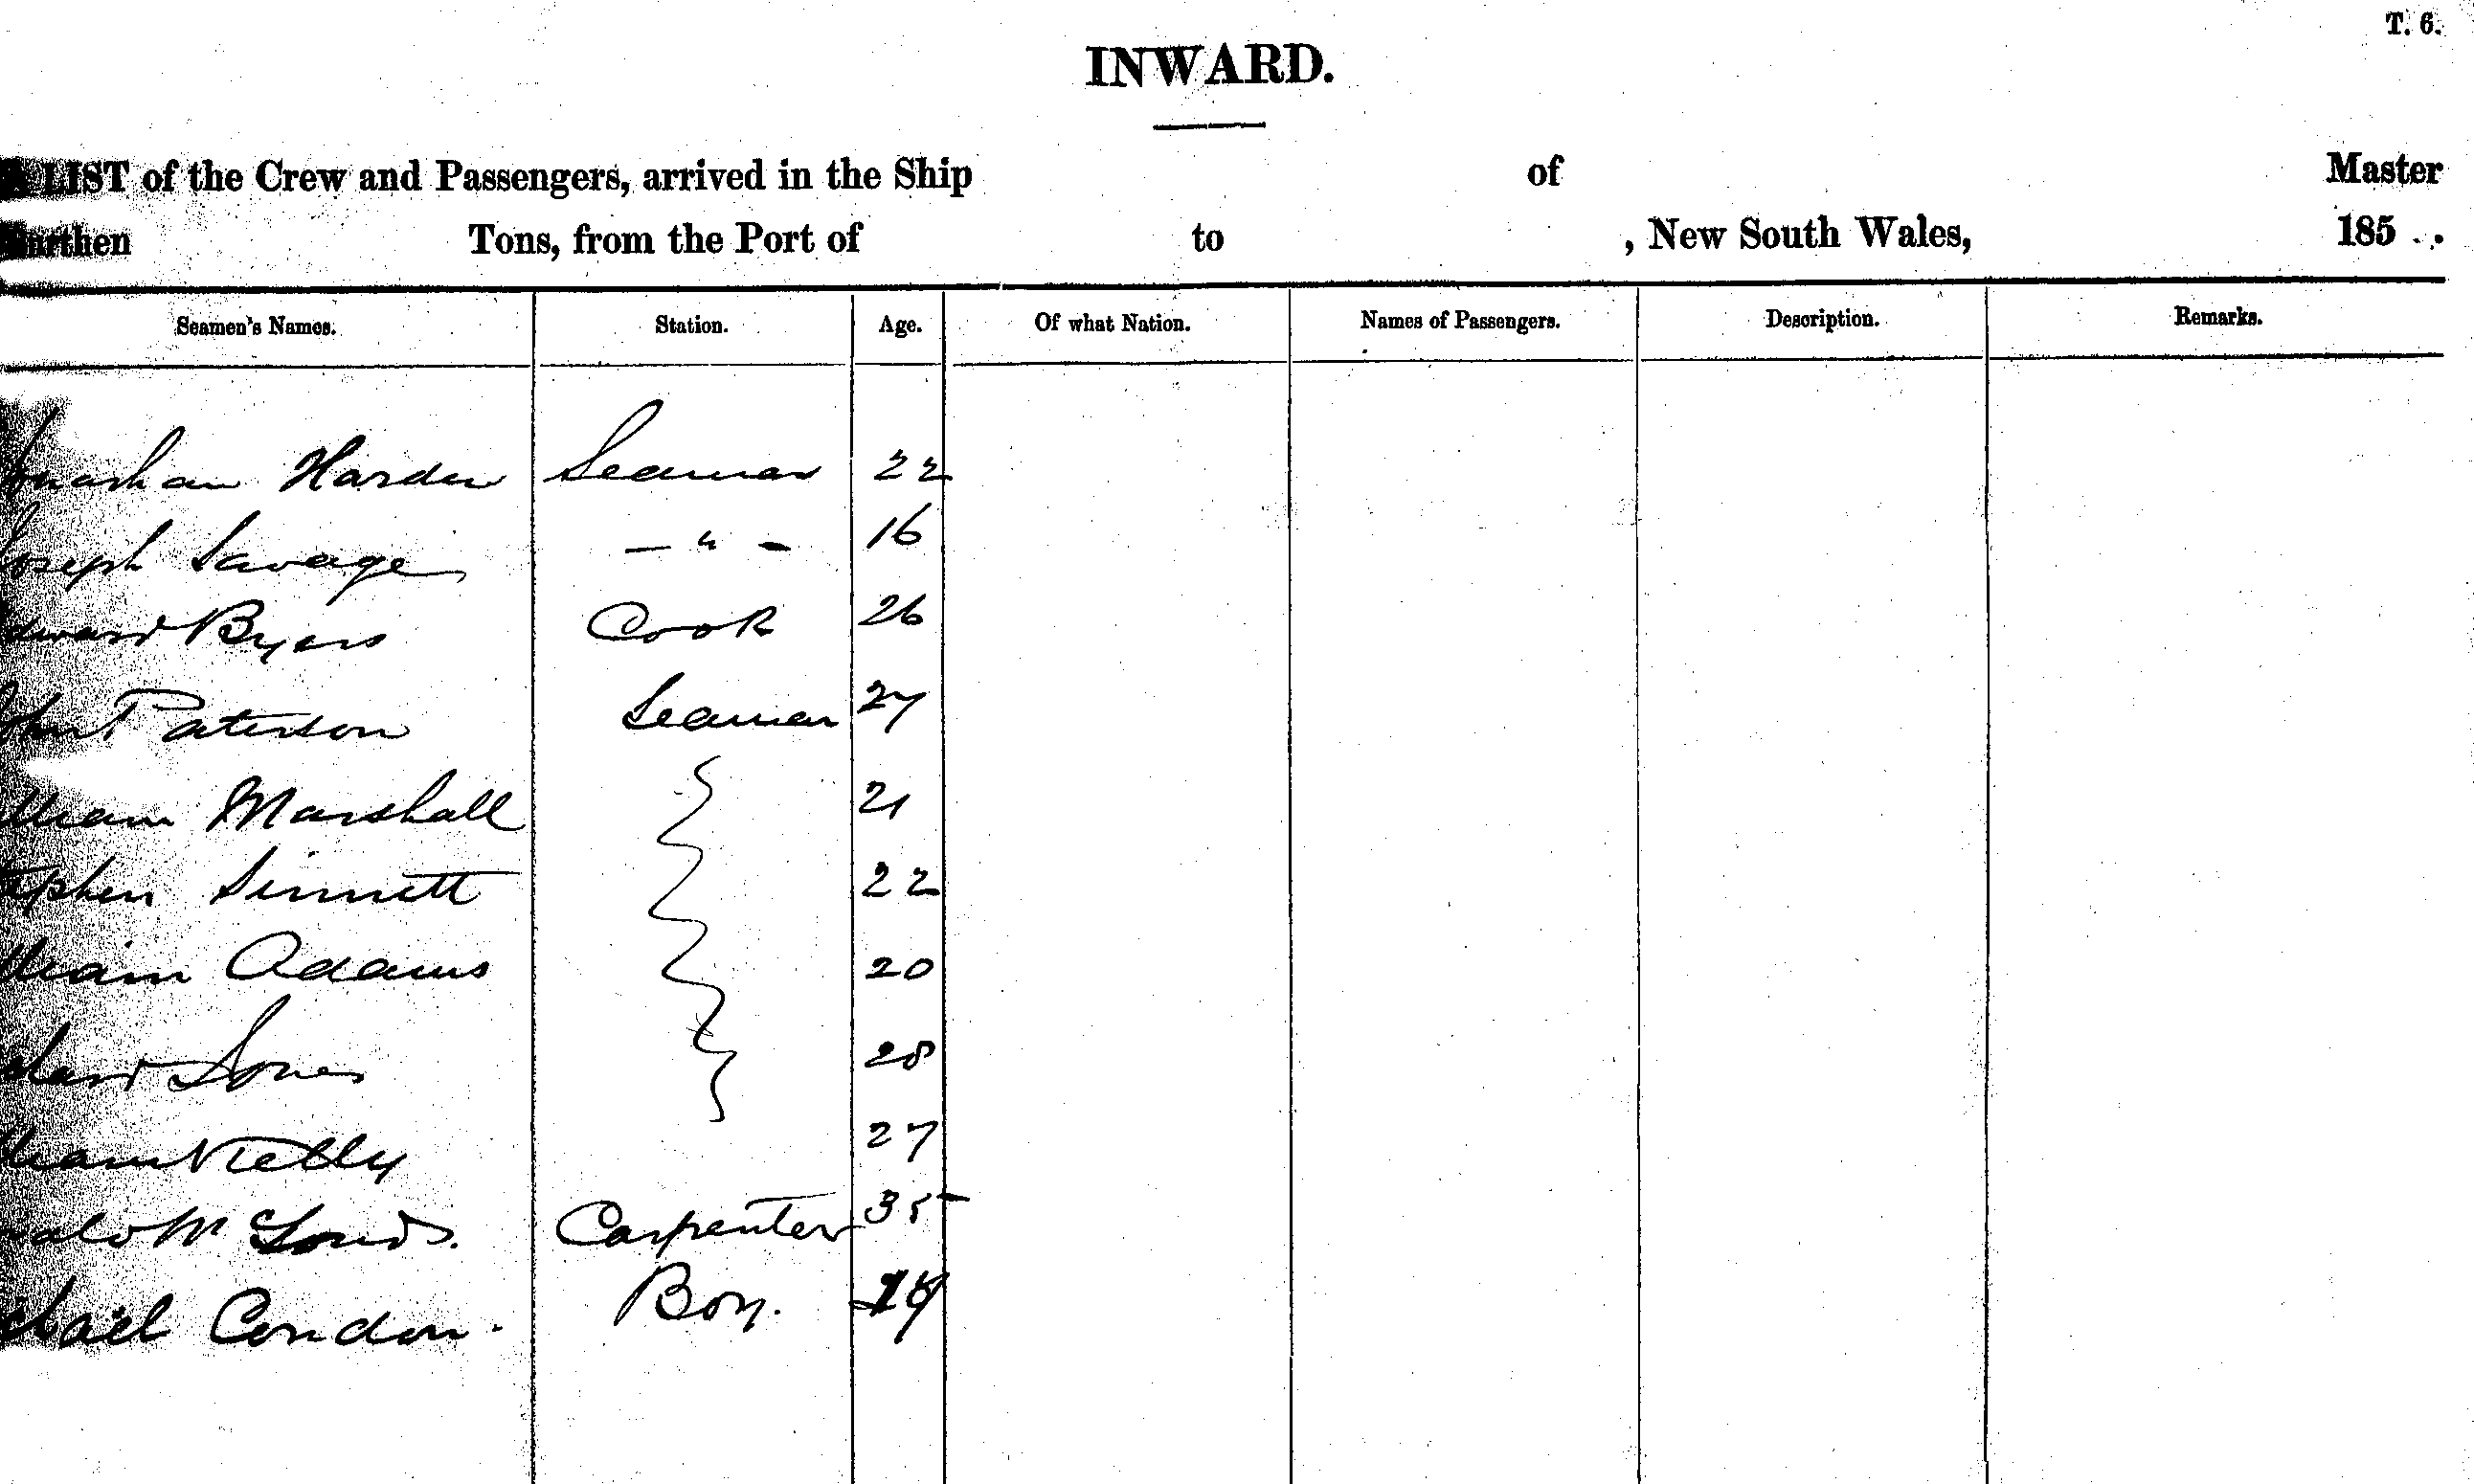 T. 6.
INWARD.
A LIST of the Crew and Passengers, arrived in the Ship of Master
Burthen Tons, from the Port of to , New South Wales, 185 . .
Seamen's Names. Station. Age. Of what Nation. Names of Passengers. Description. Remarks.
Jonathan Harden Seaman 22
Joseph Savage — " - 16
Edward Byers Cook 26
John Paterson Seaman 27
William Marshall 21
Stephen Sinnett 22
William Adams 20
Richard Jones 28
William Kelly 27
Carpenter 35
Michael Condon. Boy.